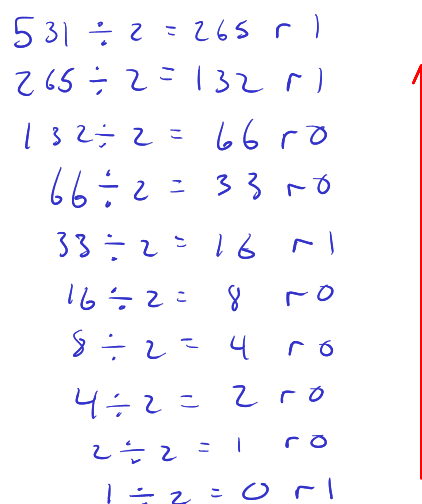 531 ÷ 2 = 265 r 1
265 ÷ 2 = 132 r 1
132 ÷ 2 = 66 r 0
66 ÷ 2 = 33 r 0
33 ÷ 2 = 16 r 1
16 ÷ 2 = 8 r 0
8 ÷ 2 = 4 r 0
4 ÷ 2 = 2 r 0
2 ÷ 2 = 1 r 0
1 ÷ 2 = 0 r 1